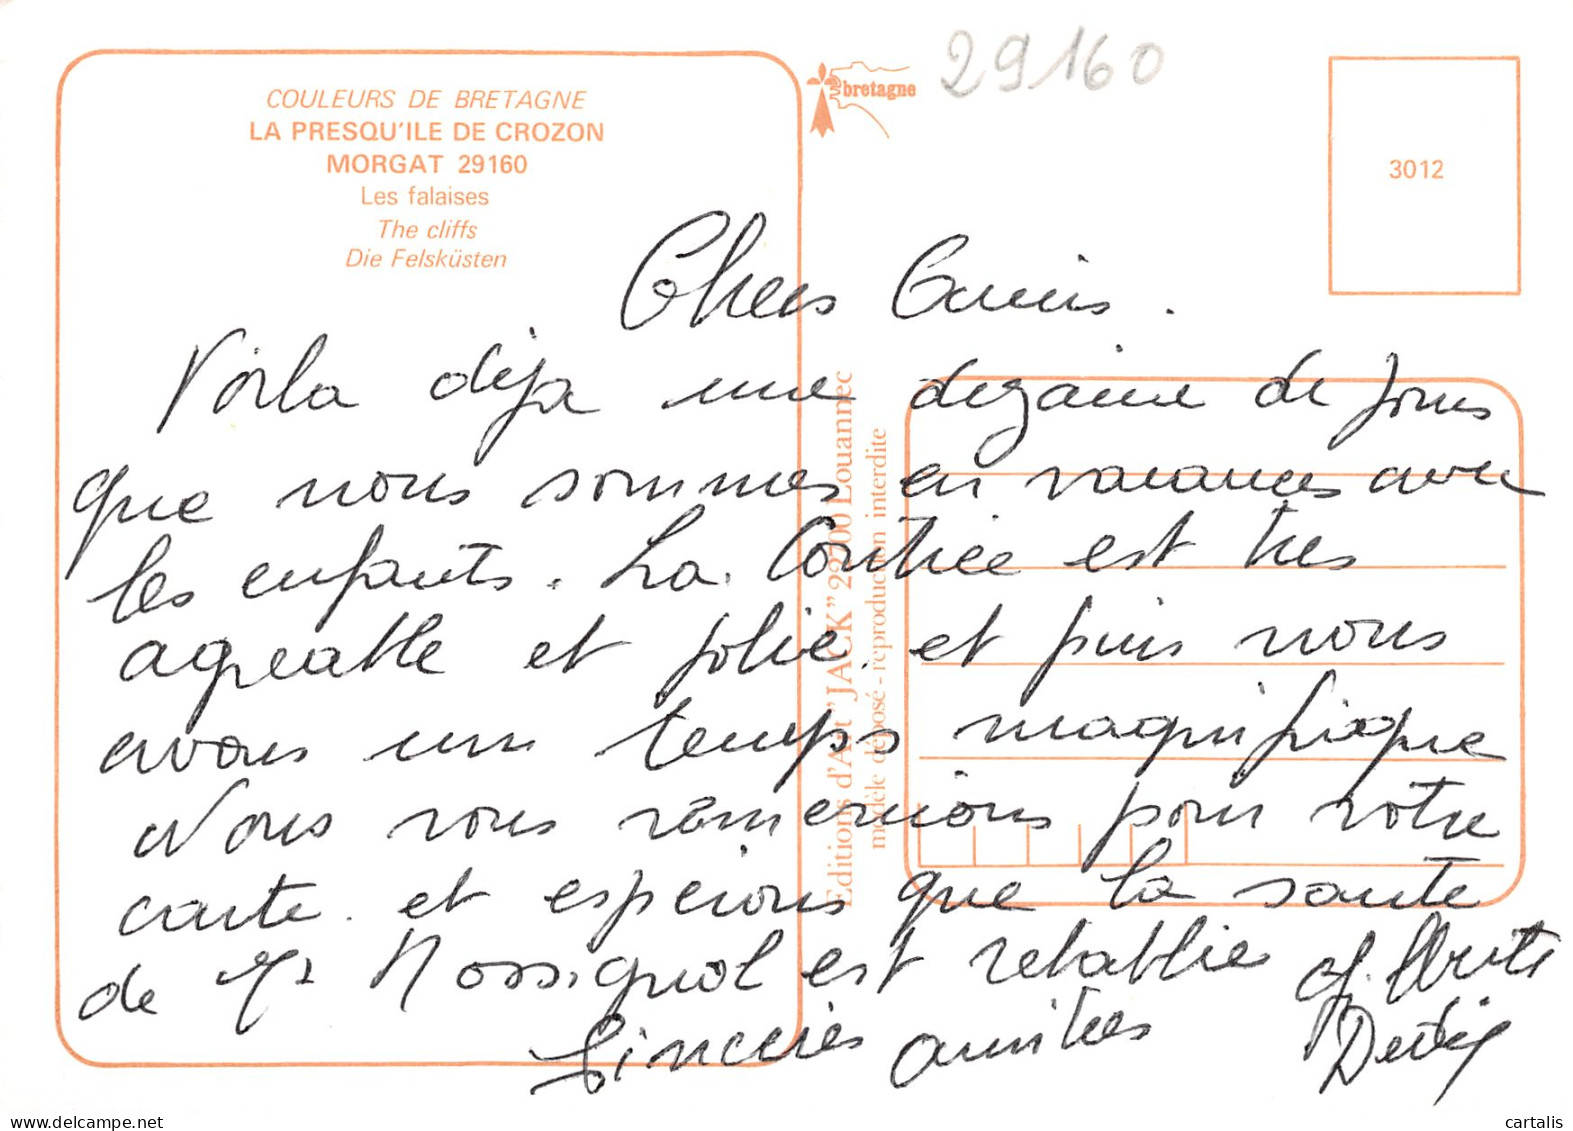 COULEURS DE BRETAGNE
LA PRESQU'ILE DE CROZON
MORGAT 29160
Les falaises
The cliffs
Die Felsküsten
bretagne
29160
3012
Editions d'Art "JACK" 22700 Louannec
modèle déposé - reproduction interdite
Chers Amis.
Voila déja une dizaine de jours
que nous sommes en vacances avec
les enfants. La Contrée est tres
agreable et jolie, et puis nous
avons un temps magnifique
Nous vous remercions pour votre
carte. et esperons que la sante
de Mr Rossignol est retablie
Sinceres amities
cartalis
www.delcampe.net